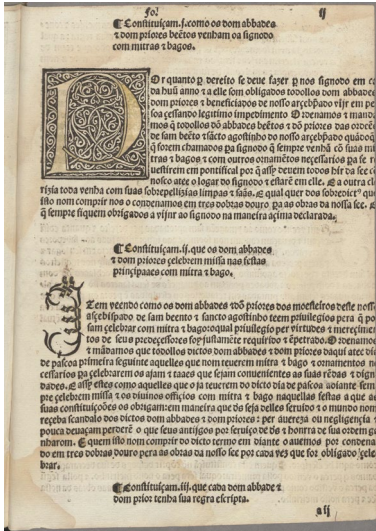 fo.ꝯ ij
¶Constituiçam .j. como os dom abbades
⁊ dom priores beẽtos venham oa signodo
com mitras ⁊ bagos.
Por quanto ꝑ dereito se deue fazer ỹ nos signodo em ca
da huũ anno ⁊ a elle som obligados todollos dom abbades
dom priores ⁊ beneficiados de nosso arçebp̃ado vijr em pes
soa çessando legitimo impedimento Ordenamos ⁊ manda
mos q̃ todollos dõ abbades beẽtos ⁊ dõ priores das ordeẽs
de sam beẽto ⁊ sãcto agostinho do nosso arçebp̃ado quãdo
q̃ forem chamados ꝑa signodo q̃ sempre venhã cõ suas mi
tras ⁊ bagos ⁊ com outros ornamẽtos necessarios ꝑa se re
uestirem em pontifical por q̃ assy deuem todos hir da see cõ
nosco atee o logar do signodo ⁊ estarẽ em elle. E a outra cle
rizia toda venha com suas sobrepellizias limpas ⁊ sãas. E qual quer dos sobredictos que
isto nom comprir nos o condenamos em tres dobras douro ꝑa as obras da nossa see. E
q̃ sempre fiquem obrigados a vijnr ao signodo na maneira açima declarada.
¶Constituiçam .ij. que os dom abbades
⁊ dom priores celebrem missa nas festas
prinçipaaes com mitra ⁊ bago.
Item veendo como os dom abbades ⁊ dõ priores dos moesteiros deste nosso
arçebispado de sam beento ⁊ sancto agostinho teem priuilegios pera q̃ pos
sam çelebrar com mitra ⁊ bago: o qual priuilegio per virtudes ⁊ mereçimen
tos de seus predeçessores foy justamẽte requirido ⁊ ẽpetrado. Ordenamos
⁊ mãdamos que todollos dictos dom abbades ⁊ dom priores daqui atee dia
de pascoa primeira seguinte aquelles que nom teuerem mitra ⁊ bago ⁊ ornamentos ne
cessarios ꝑa çelebrarem os ajam ⁊ taaes que sejam conuenientes aas suas rẽdas ⁊ digni
dades. E assy estes como aquelles que o ja teuerem do dicto dia de pascoa adiante sem
pre çelebrem missa ⁊ os diuinos offiçios com mitra ⁊ bago naquellas festas a que as
suas constituições os obrigam: em maneira que ds̃ seja delles seruido ⁊ o mundo nom
reçeba scandalo dos dictos dom abbades ⁊ dom priores: per auereza ou negligençia ⁊
pouca deuaçam perderẽ o que seus antijgos por seruiço de ds̃ ⁊ honra de sua ordem ga
nharom. E quem isto nom comprir do dicto termo em diante o auemos por condena
do em tres dobras douro pera as obras da nossa see por cada vez que for obligado çele
brar.
¶Constituiçam .iij. que cada dom abbade ⁊
dom prior tenha sua regra escripta.
a ij